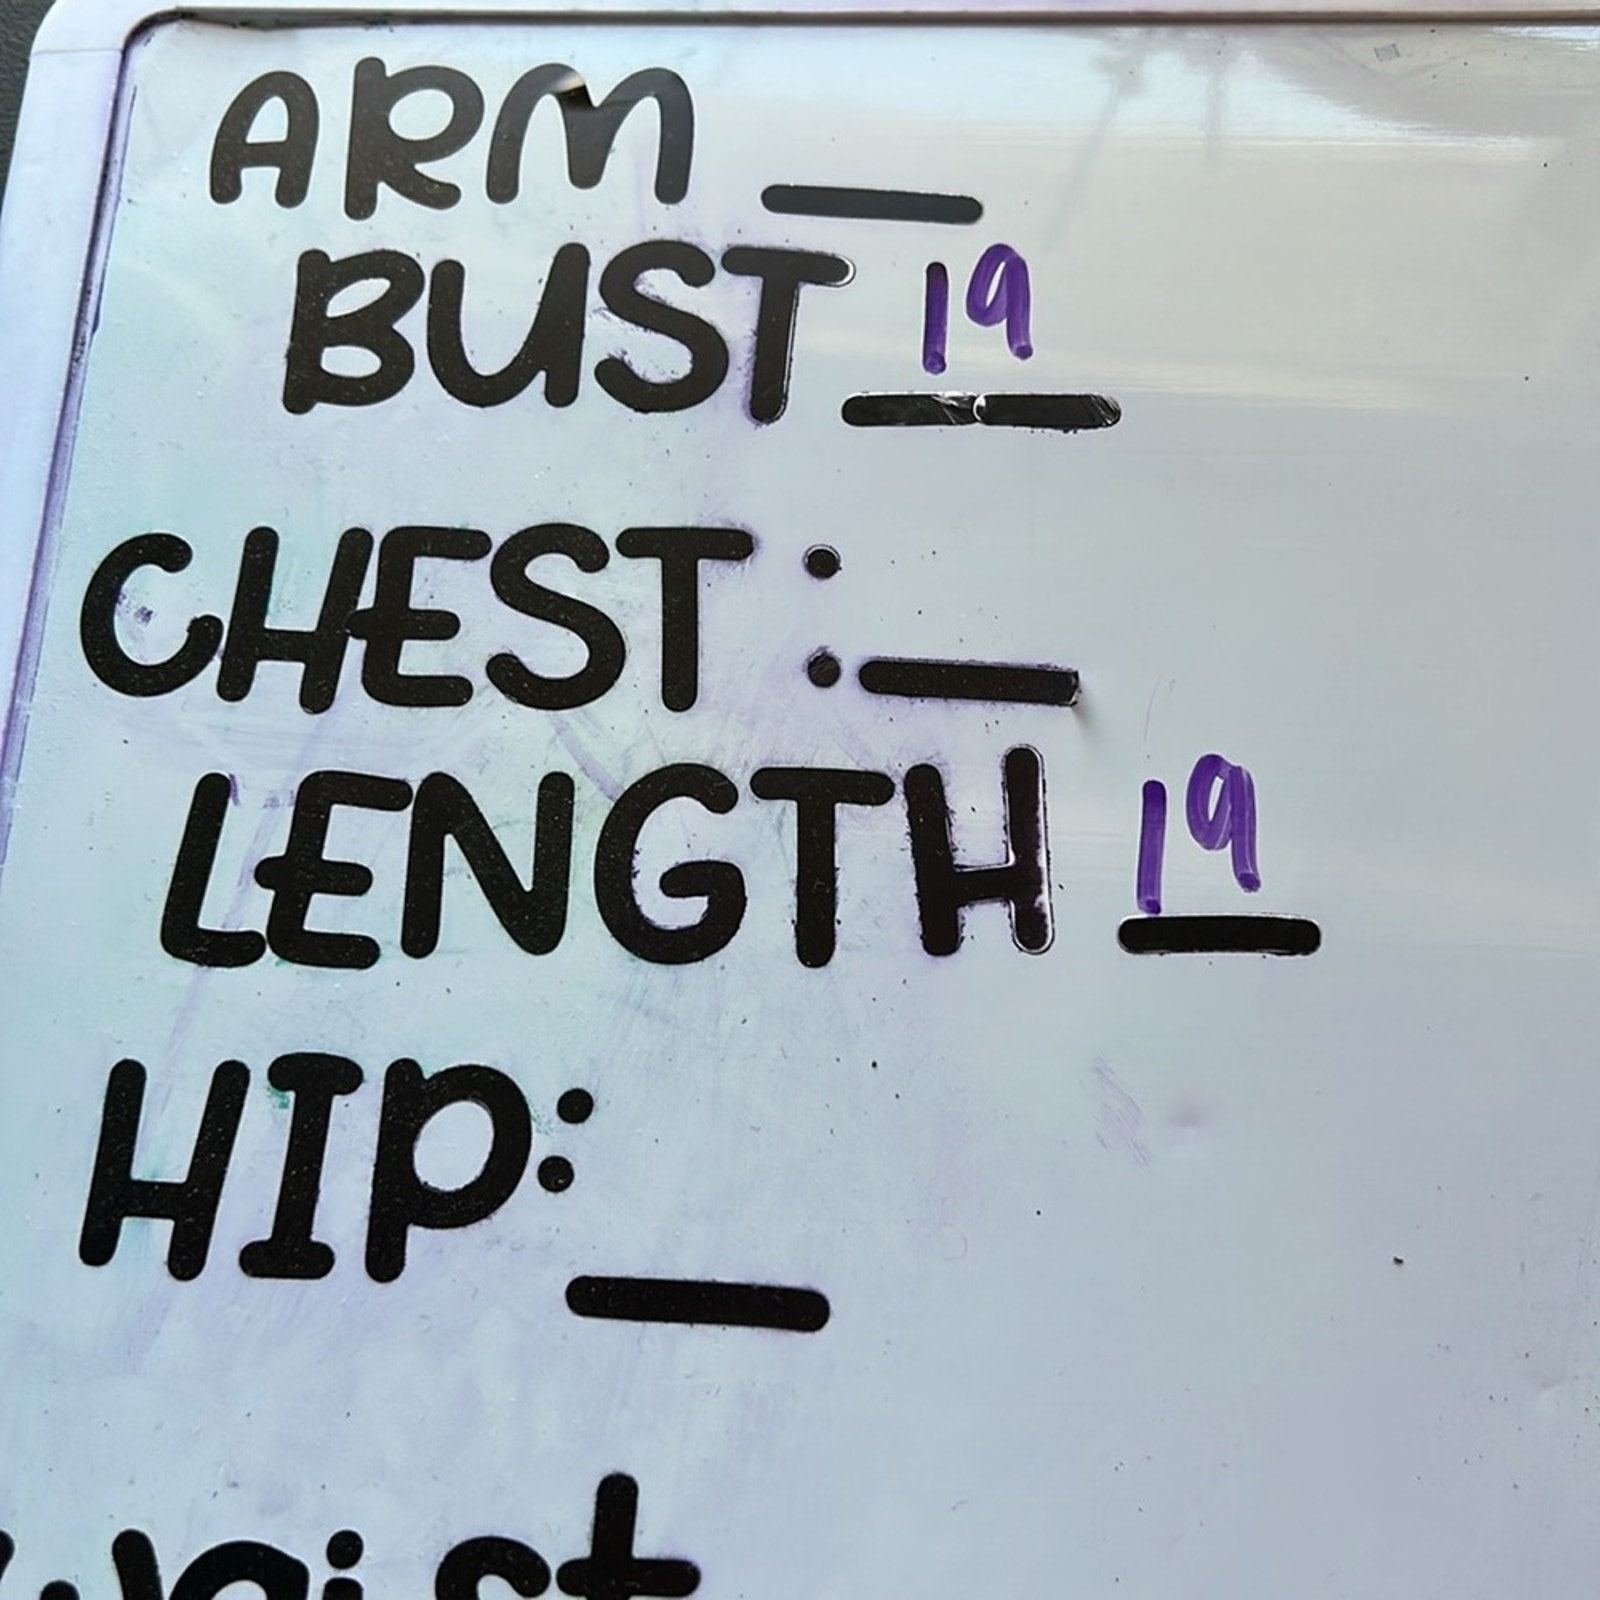 ARM _
BUST 19
CHEST : _
LENGTH 19
HIP: _
waist